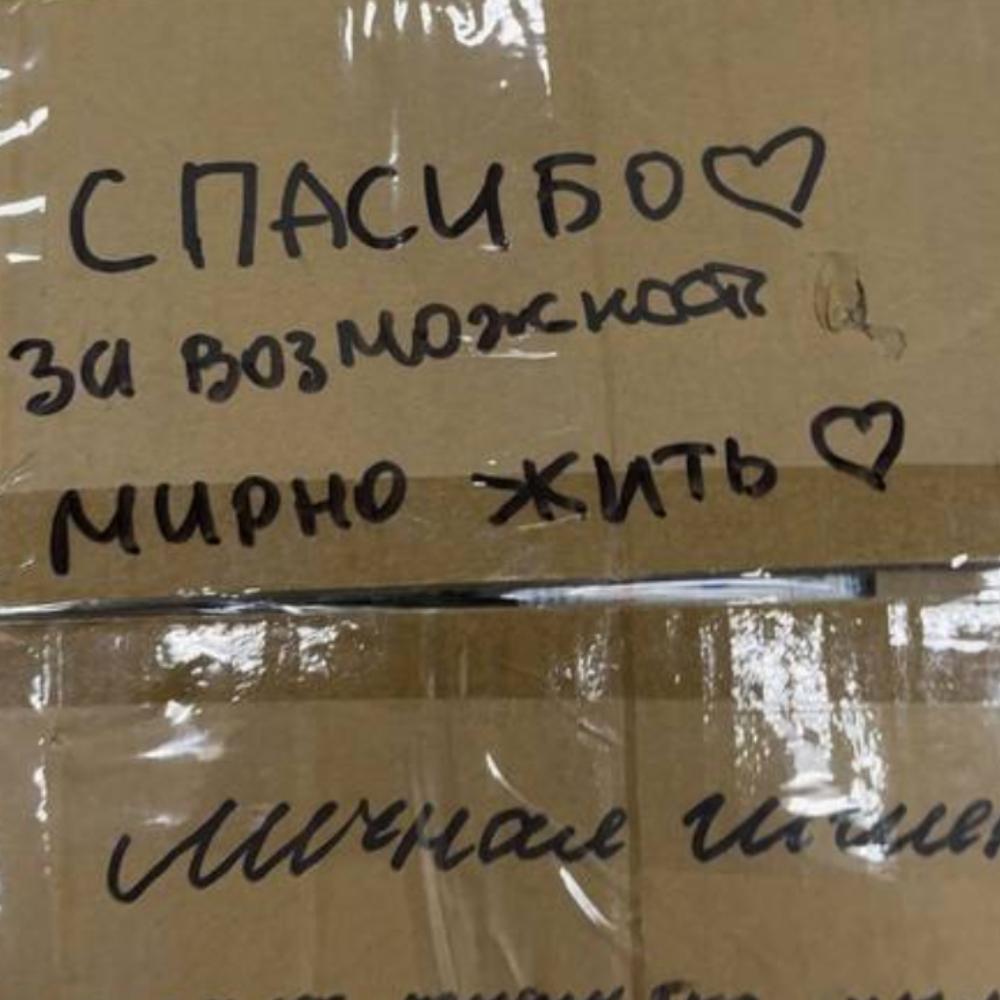 СПАСИБО♡
за возможность
мирно жить ♡
личная гигиен